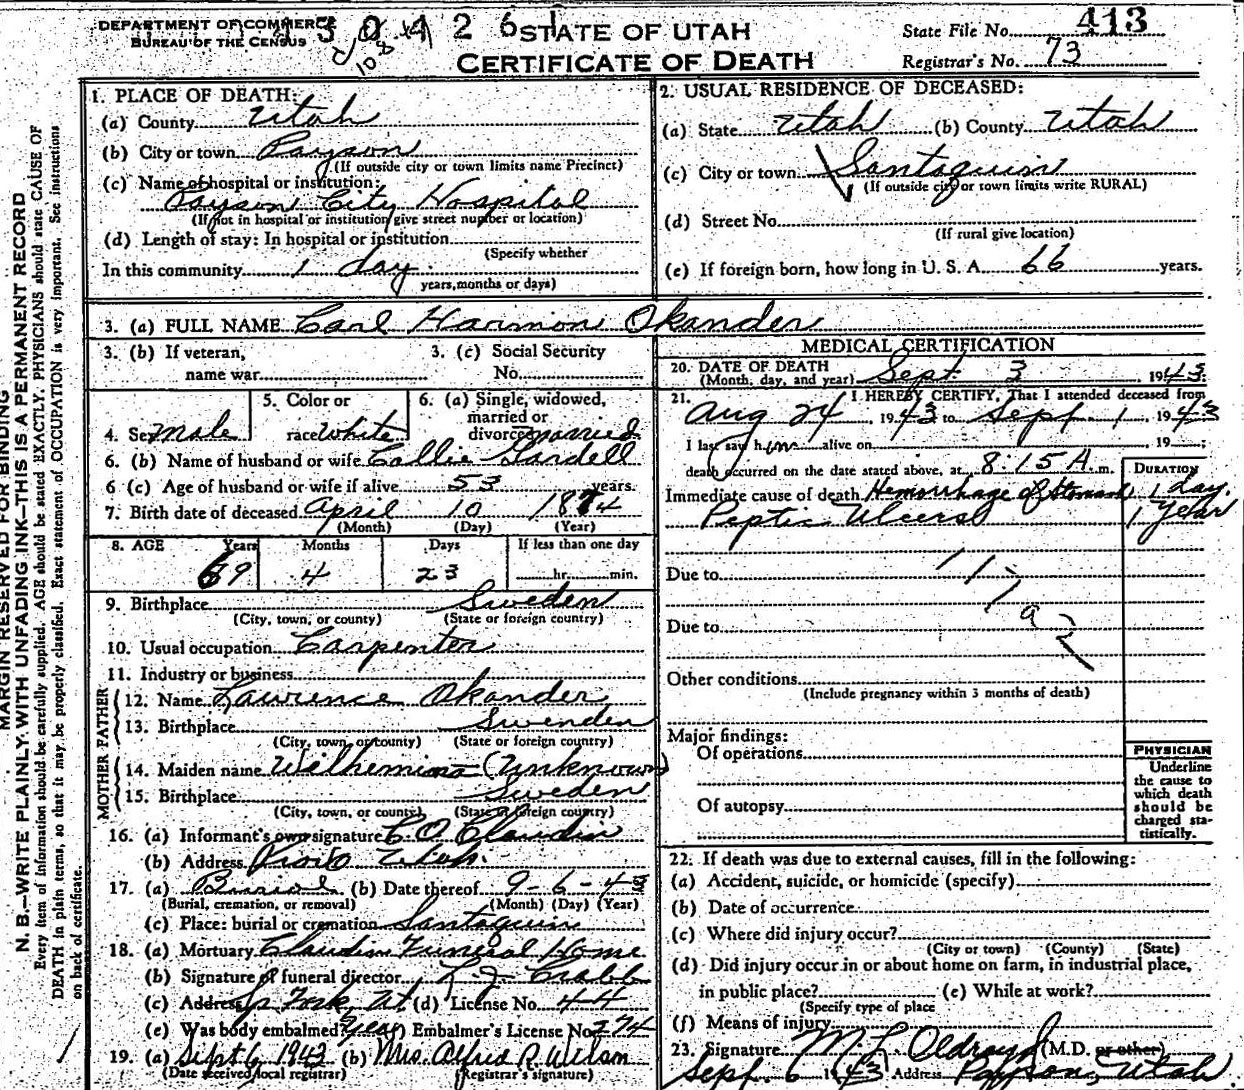 DEPARTMENT OF COMMERCE
BUREAU OF THE CENSUS
STATE OF UTAH
CERTIFICATE OF DEATH
State File No. 413
Registrar's No. 73
MARGIN RESERVED FOR BINDING
N. B.—WRITE PLAINLY, WITH UNFADING INK—THIS IS A PERMANENT RECORD
Every item of information should be carefully supplied. AGE should be stated EXACTLY. PHYSICIANS should state CAUSE OF
DEATH in plain terms, so that it may be properly classified. Exact statement of OCCUPATION is very important. See instructions
on back of certificate.
1. PLACE OF DEATH:
(a) County Utah
(b) City or town Payson
(If outside city or town limits name Precinct)
(c) Name of hospital or institution:
Payson City Hospital
(If not in hospital or institution give street number or location)
(d) Length of stay: In hospital or institution
(Specify whether
In this community 1 day.
years, months or days)
2. USUAL RESIDENCE OF DECEASED:
(a) State Utah (b) County Utah
(c) City or town Santaquin
(If outside city or town limits write RURAL)
(d) Street No.
(If rural give location)
(e) If foreign born, how long in U. S. A. 66 years.
3. (a) FULL NAME Carl Harmon Okander
3. (b) If veteran,
name war
3. (c) Social Security
No.
4. Sex Male
5. Color or
race White
6. (a) Single, widowed,
married or
divorced married
6. (b) Name of husband or wife Callie Gardell
6 (c) Age of husband or wife if alive 53 years.
7. Birth date of deceased April 10 1874
(Month) (Day) (Year)
8. AGE Years Months Days If less than one day
69 4 23 hr. min.
9. Birthplace Sweden
(City, town, or county) (State or foreign country)
10. Usual occupation Carpenter
11. Industry or business
FATHER
12. Name Lawrence Okander
13. Birthplace Swenden
(City, town, or county) (State or foreign country)
MOTHER
14. Maiden name Wilhemina (Unknown)
15. Birthplace Sweden
(City, town, or county) (State or foreign country)
16. (a) Informant's own signature C. O. Claudin
(b) Address Provo Utah.
17. (a) Burial (b) Date thereof 9-6-43
(Burial, cremation, or removal) (Month) (Day) (Year)
(c) Place: burial or cremation Santaquin
18. (a) Mortuary Claudin Funeral Home
(b) Signature of funeral director Crabb
(c) Address Sp Fork Ut (d) License No. 44
(e) Was body embalmed? Yes (f) Embalmer's License No. 274
19. (a) Sept 6, 1943 (b) Mrs. Alfred R. Wilson
(Date received local registrar) (Registrar's signature)
MEDICAL CERTIFICATION
20. DATE OF DEATH
(Month, day, and year) Sept. 3, 1943
21. I HEREBY CERTIFY, That I attended deceased from
Aug 24, 1943 to Sept 1, 1943
I last saw him alive on , 19 ;
death occurred on the date stated above, at 8:15 A. m.
DURATION
Immediate cause of death Hemorrhage of Stomach 1 day.
Peptic Ulcers 1 Year
Due to
Due to
Other conditions
(Include pregnancy within 3 months of death)
Major findings:
Of operations
Of autopsy
PHYSICIAN
Underline
the cause to
which death
should be
charged sta-
tistically.
22. If death was due to external causes, fill in the following:
(a) Accident, suicide, or homicide (specify)
(b) Date of occurrence
(c) Where did injury occur?
(City or town) (County) (State)
(d) Did injury occur in or about home on farm, in industrial place,
in public place? (e) While at work?
(Specify type of place
(f) Means of injury
23. Signature M. L. Oldroyd (M.D. or other)
Sept. 6 1943 Address Payson, Utah